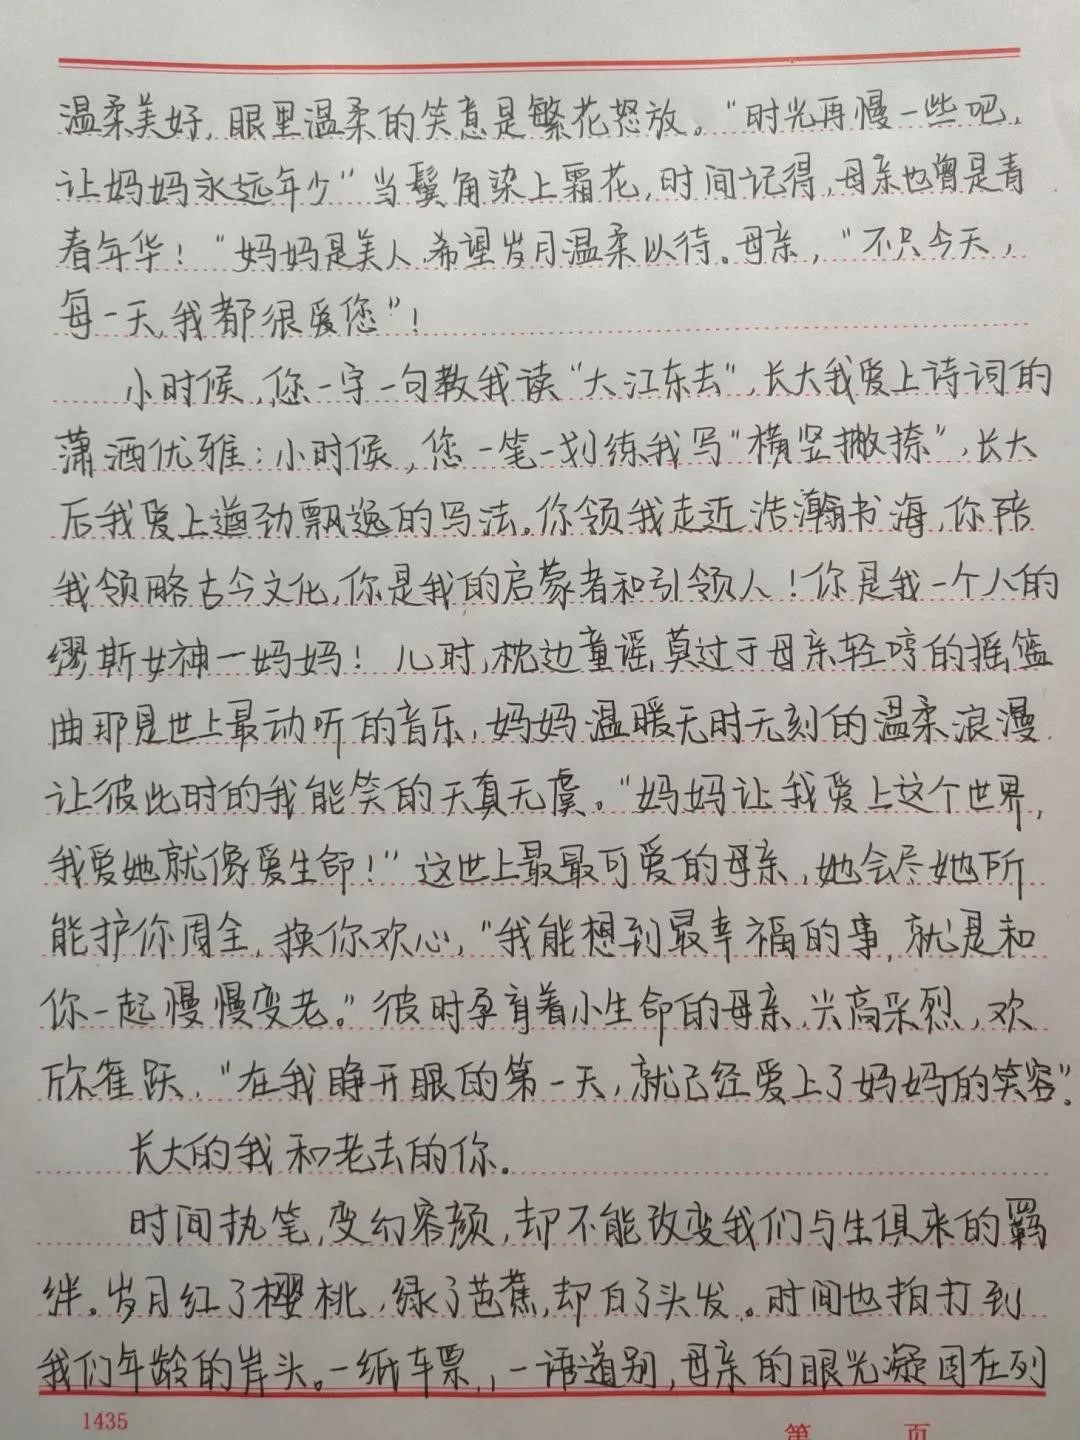 温柔美好，眼里温柔的笑意是繁花怒放。“时光再慢一些吧，
让妈妈永远年少”当鬓角染上霜花，时间记得，母亲也曾是青
春年华！“妈妈是美人，希望岁月温柔以待。母亲，“不只今天，
每一天，我都很爱您”！
小时候，您一字一句教我读“大江东去”，长大我爱上诗词的
潇洒优雅：小时候，您一笔一划练我写“横竖撇捺”，长大
后我爱上遒劲飘逸的写法。你领我走近浩瀚书海，你陪
我领略古今文化，你是我的启蒙者和引领人！你是我一个人的
缪斯女神一妈妈！儿时，枕边童谣，莫过于母亲轻哼的摇篮
曲那是世上最动听的音乐，妈妈温暖无时无刻的温柔浪漫
让彼此时的我能笑的天真无虞。“妈妈让我爱上这个世界，
我爱她就像爱生命！”这世上最最可爱的母亲，她会尽她所
能护你周全，换你欢心，“我能想到最幸福的事，就是和
你一起慢慢变老。”彼时孕育着小生命的母亲，兴高采烈，欢
欣雀跃，“在我睁开眼的第一天，就已经爱上了妈妈的笑容”。
长大的我和老去的你。
时间执笔，变幻容颜，却不能改变我们与生俱来的羁
绊。岁月红了樱桃，绿了芭蕉，却白了头发。时间也拍打到
我们年龄的岸头。一纸车票，一语道别，母亲的眼光凝固在列
1435
第 页